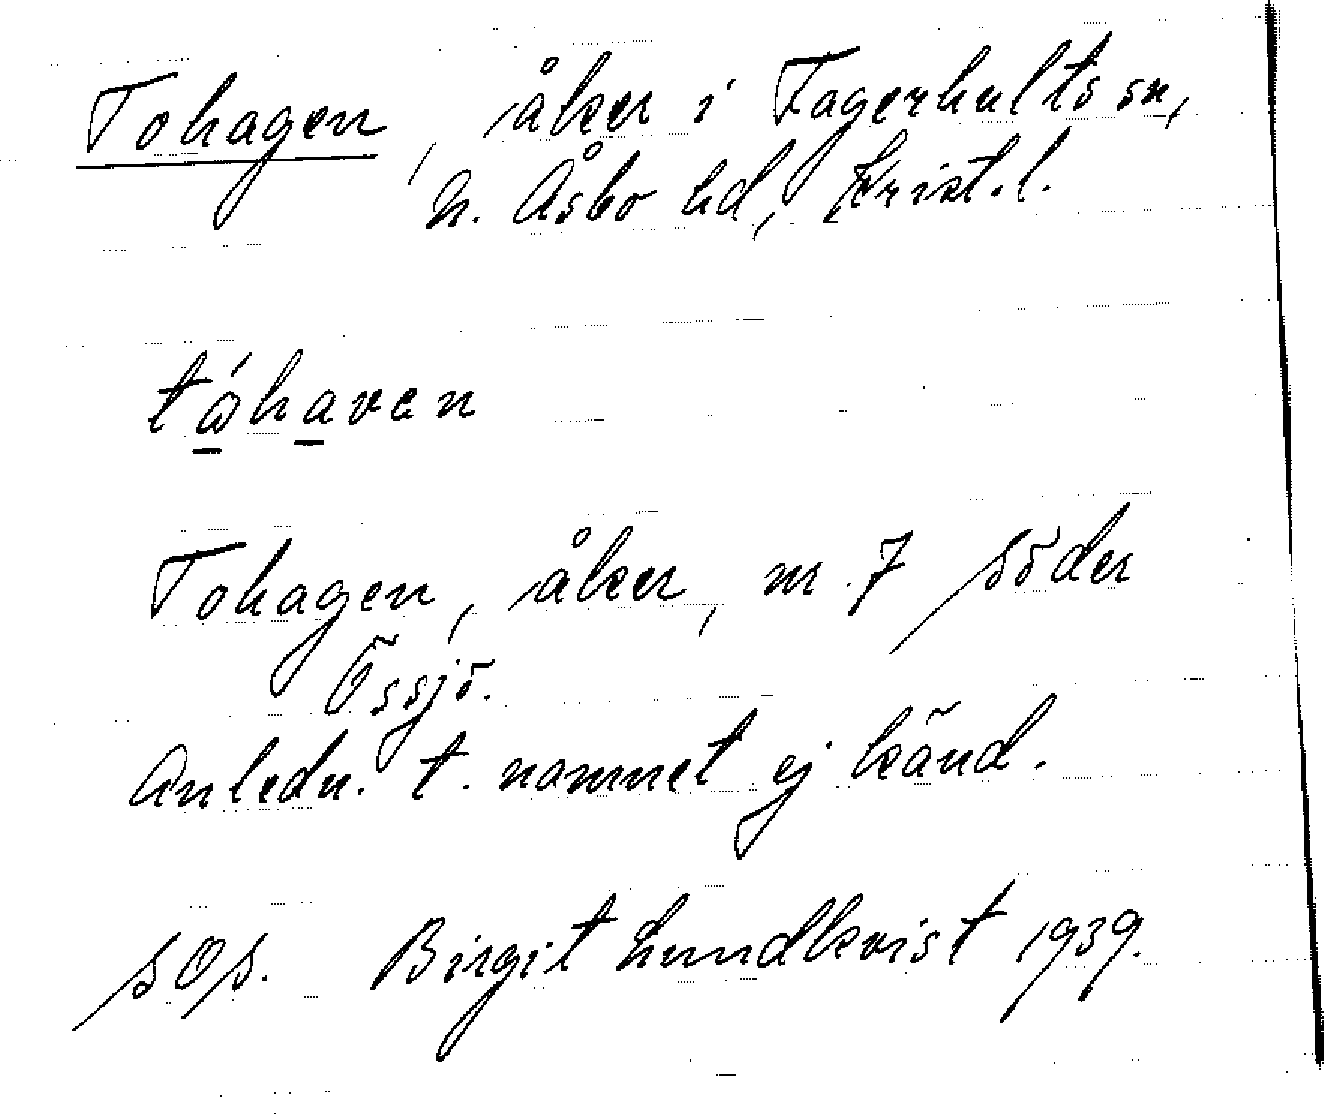 Tohagen, åker i Fagerhults sn,
N. Åsbo hd, Krist. l.
tóhaven
Tohagen, åker, nr 7 Söder
Össjö.
Anledn. t. namnet ej känd.
SOS. Birgit Lundkvist 1939.